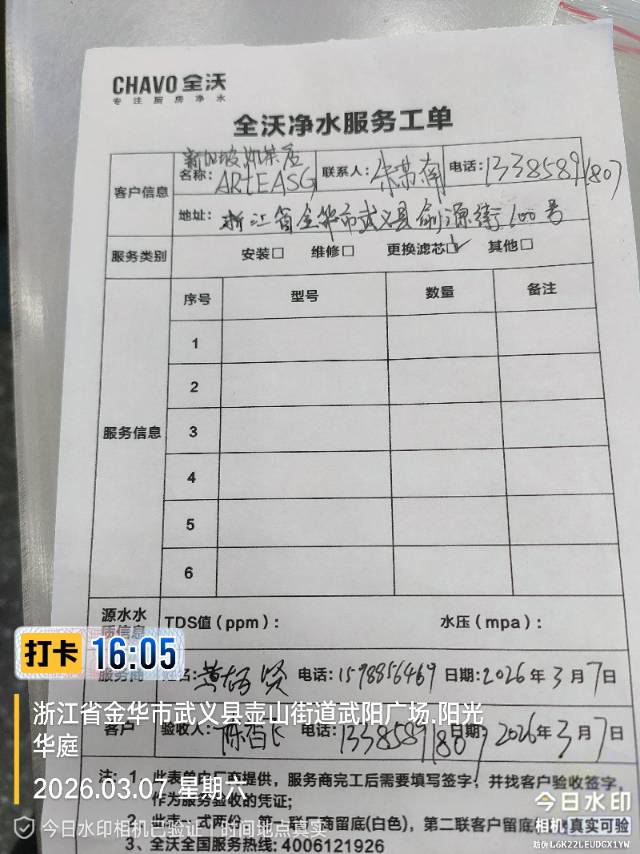 CHAVO 全沃
专注厨房净水
全沃净水服务工单
客户信息
新加坡奶茶店
名称: ARtEASG
联系人:
电话: 13385891807
地址: 浙江省金华市武义县俞源街100号
服务类别
安装□ 维修□ 更换滤芯☑ 其他□
服务信息
序号 型号 数量 备注
1
2
3
4
5
6
源水水质信息
TDS值（ppm）: 水压（mpa）:
服务商
姓名: 电话: 1598856469 日期: 2026年3月7日
客户
验收人: 电话: 13385891807 日期: 2026年3月7日
注: 1、此表单由厂商提供，服务商完工后需要填写签字，并找客户验收签字，
作为服务验收的凭证;
2、此表一式两份，第一联厂商留底(白色)，第二联客户留底
3、全沃全国服务热线: 4006121926
打卡 16:05
浙江省金华市武义县壶山街道武阳广场.阳光
华庭
2026.03.07 星期六
今日水印相机已验证 时间地点真实
今日水印
相机 真实可验
防伪 L6K22LEUDGX1YW